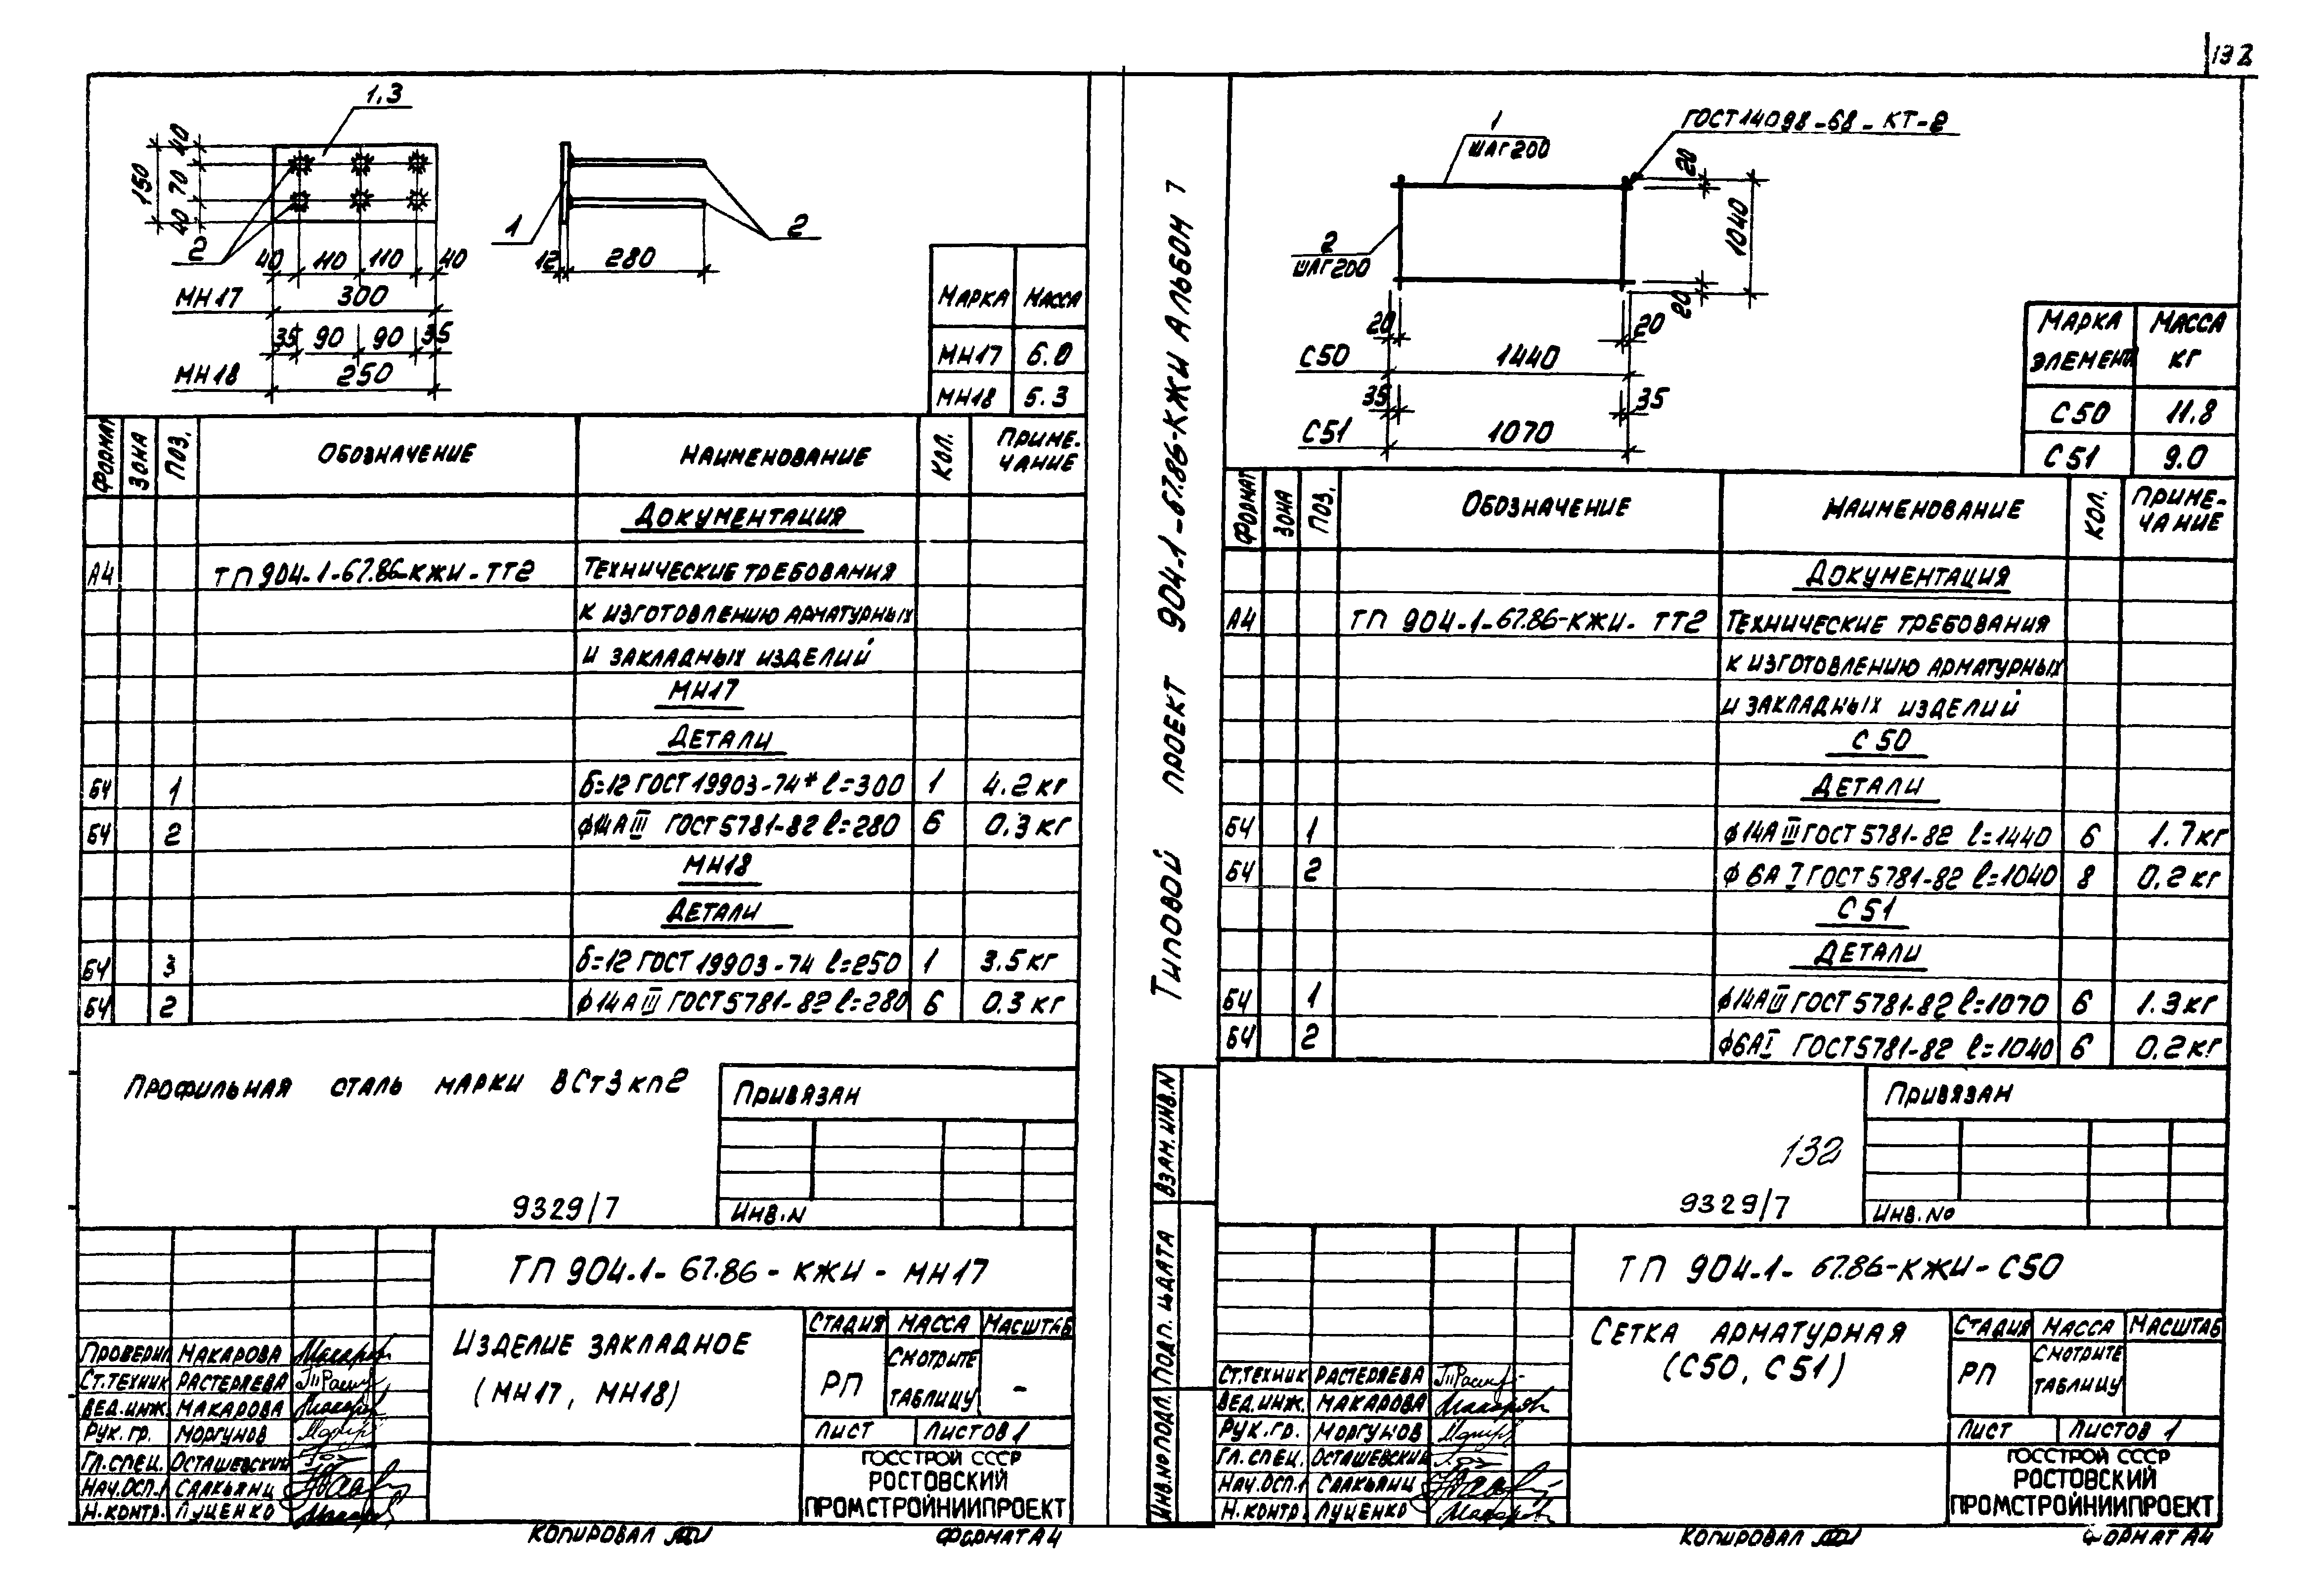 132
1.3
40
150
70
40
2
40 110 110 40
МН17 300
35 90 90 35
МН18 250
1
2
12 280
МАРКА МАССА
МН17 6.0
МН18 5.3
ФОРМАТ ЗОНА ПОЗ. ОБОЗНАЧЕНИЕ НАИМЕНОВАНИЕ КОЛ. ПРИМЕ-
ЧАНИЕ
ДОКУМЕНТАЦИЯ
А4 ТП 904-1-67.86-КЖИ-ТТ2 ТЕХНИЧЕСКИЕ ТРЕБОВАНИЯ
К ИЗГОТОВЛЕНИЮ АРМАТУРНЫХ
И ЗАКЛАДНЫХ ИЗДЕЛИЙ
МН17
ДЕТАЛИ
БЧ 1 δ=12 ГОСТ 19903-74* ℓ=300 1 4.2 кг
БЧ 2 ф14АIII ГОСТ 5781-82 ℓ=280 6 0.3 кг
МН18
ДЕТАЛИ
БЧ 3 δ=12 ГОСТ 19903-74 ℓ=250 1 3.5 кг
БЧ 2 ф14АIII ГОСТ 5781-82 ℓ=280 6 0.3 кг
ПРОФИЛЬНАЯ СТАЛЬ МАРКИ ВСт3кп2
ПРИВЯЗАН
9329/7
ИНВ.N
ТП 904-1-67.86-КЖИ-МН17
ИЗДЕЛИЕ ЗАКЛАДНОЕ
(МН17, МН18)
СТАДИЯ МАССА МАСШТАБ
РП СМОТРИТЕ
ТАБЛИЦУ -
ЛИСТ ЛИСТОВ 1
ПРОВЕРИЛ МАКАРОВА
СТ.ТЕХНИК РАСТЕРЯЕВА
ВЕД.ИНЖ. МАКАРОВА
РУК.ГР. МОРГУНОВ
ГЛ.СПЕЦ. ОСТАШЕВСКИЙ
НАЧ.ОСП-1 СААКЬЯНЦ
Н.КОНТР. ЛУЦЕНКО
ГОССТРОЙ СССР
РОСТОВСКИЙ
ПРОМСТРОЙНИИПРОЕКТ
КОПИРОВАЛ
ФОРМАТ А4
ТИПОВОЙ ПРОЕКТ 904-1-67.86-КЖИ АЛЬБОМ 7
ВЗАМ.ИНВ.N
ПОДП. И ДАТА
ИНВ.№ ПОДЛ.
1
ШАГ 200
ГОСТ 14098-68-КТ-2
20
1040
20
2
ШАГ 200
20 20
С50 1440
35 35
С51 1070
МАРКА
ЭЛЕМЕНТА
МАССА
КГ
С50 11.8
С51 9.0
ФОРМАТ ЗОНА ПОЗ. ОБОЗНАЧЕНИЕ НАИМЕНОВАНИЕ КОЛ. ПРИМЕ-
ЧАНИЕ
ДОКУМЕНТАЦИЯ
А4 ТП 904-1-67.86-КЖИ-ТТ2 ТЕХНИЧЕСКИЕ ТРЕБОВАНИЯ
К ИЗГОТОВЛЕНИЮ АРМАТУРНЫХ
И ЗАКЛАДНЫХ ИЗДЕЛИЙ
С50
ДЕТАЛИ
БЧ 1 ф14АIII ГОСТ 5781-82 ℓ=1440 6 1.7 кг
БЧ 2 ф6АI ГОСТ 5781-82 ℓ=1040 8 0.2 кг
С51
ДЕТАЛИ
БЧ 1 ф14АIII ГОСТ 5781-82 ℓ=1070 6 1.3 кг
БЧ 2 ф6АI ГОСТ 5781-82 ℓ=1040 6 0.2 кг
ПРИВЯЗАН
132
9329/7
ИНВ.№
ТП 904-1-67.86-КЖИ-С50
СЕТКА АРМАТУРНАЯ
(С50, С51)
СТАДИЯ МАССА МАСШТАБ
РП СМОТРИТЕ
ТАБЛИЦУ
ЛИСТ ЛИСТОВ 1
СТ.ТЕХНИК РАСТЕРЯЕВА
ВЕД.ИНЖ. МАКАРОВА
РУК.ГР. МОРГУНОВ
ГЛ.СПЕЦ. ОСТАШЕВСКИЙ
НАЧ.ОСП.1 СААКЬЯНЦ
Н.КОНТР. ЛУЦЕНКО
ГОССТРОЙ СССР
РОСТОВСКИЙ
ПРОМСТРОЙНИИПРОЕКТ
КОПИРОВАЛ
ФОРМАТ А4